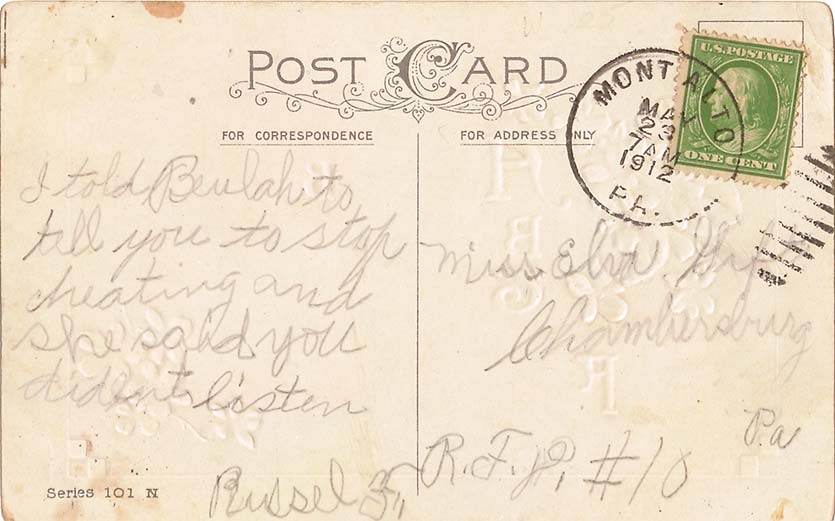 POST CARD
FOR CORRESPONDENCE
FOR ADDRESS ONLY
U.S. POSTAGE
ONE CENT
MONT ALTO
MAY
23
7 AM
1912
PA.
I told Beulah to
tell you to stop
cheating and
she said you
dident listen
Russel
Miss
Chambersburg
Pa
R.F.D. #10
Series 101 N